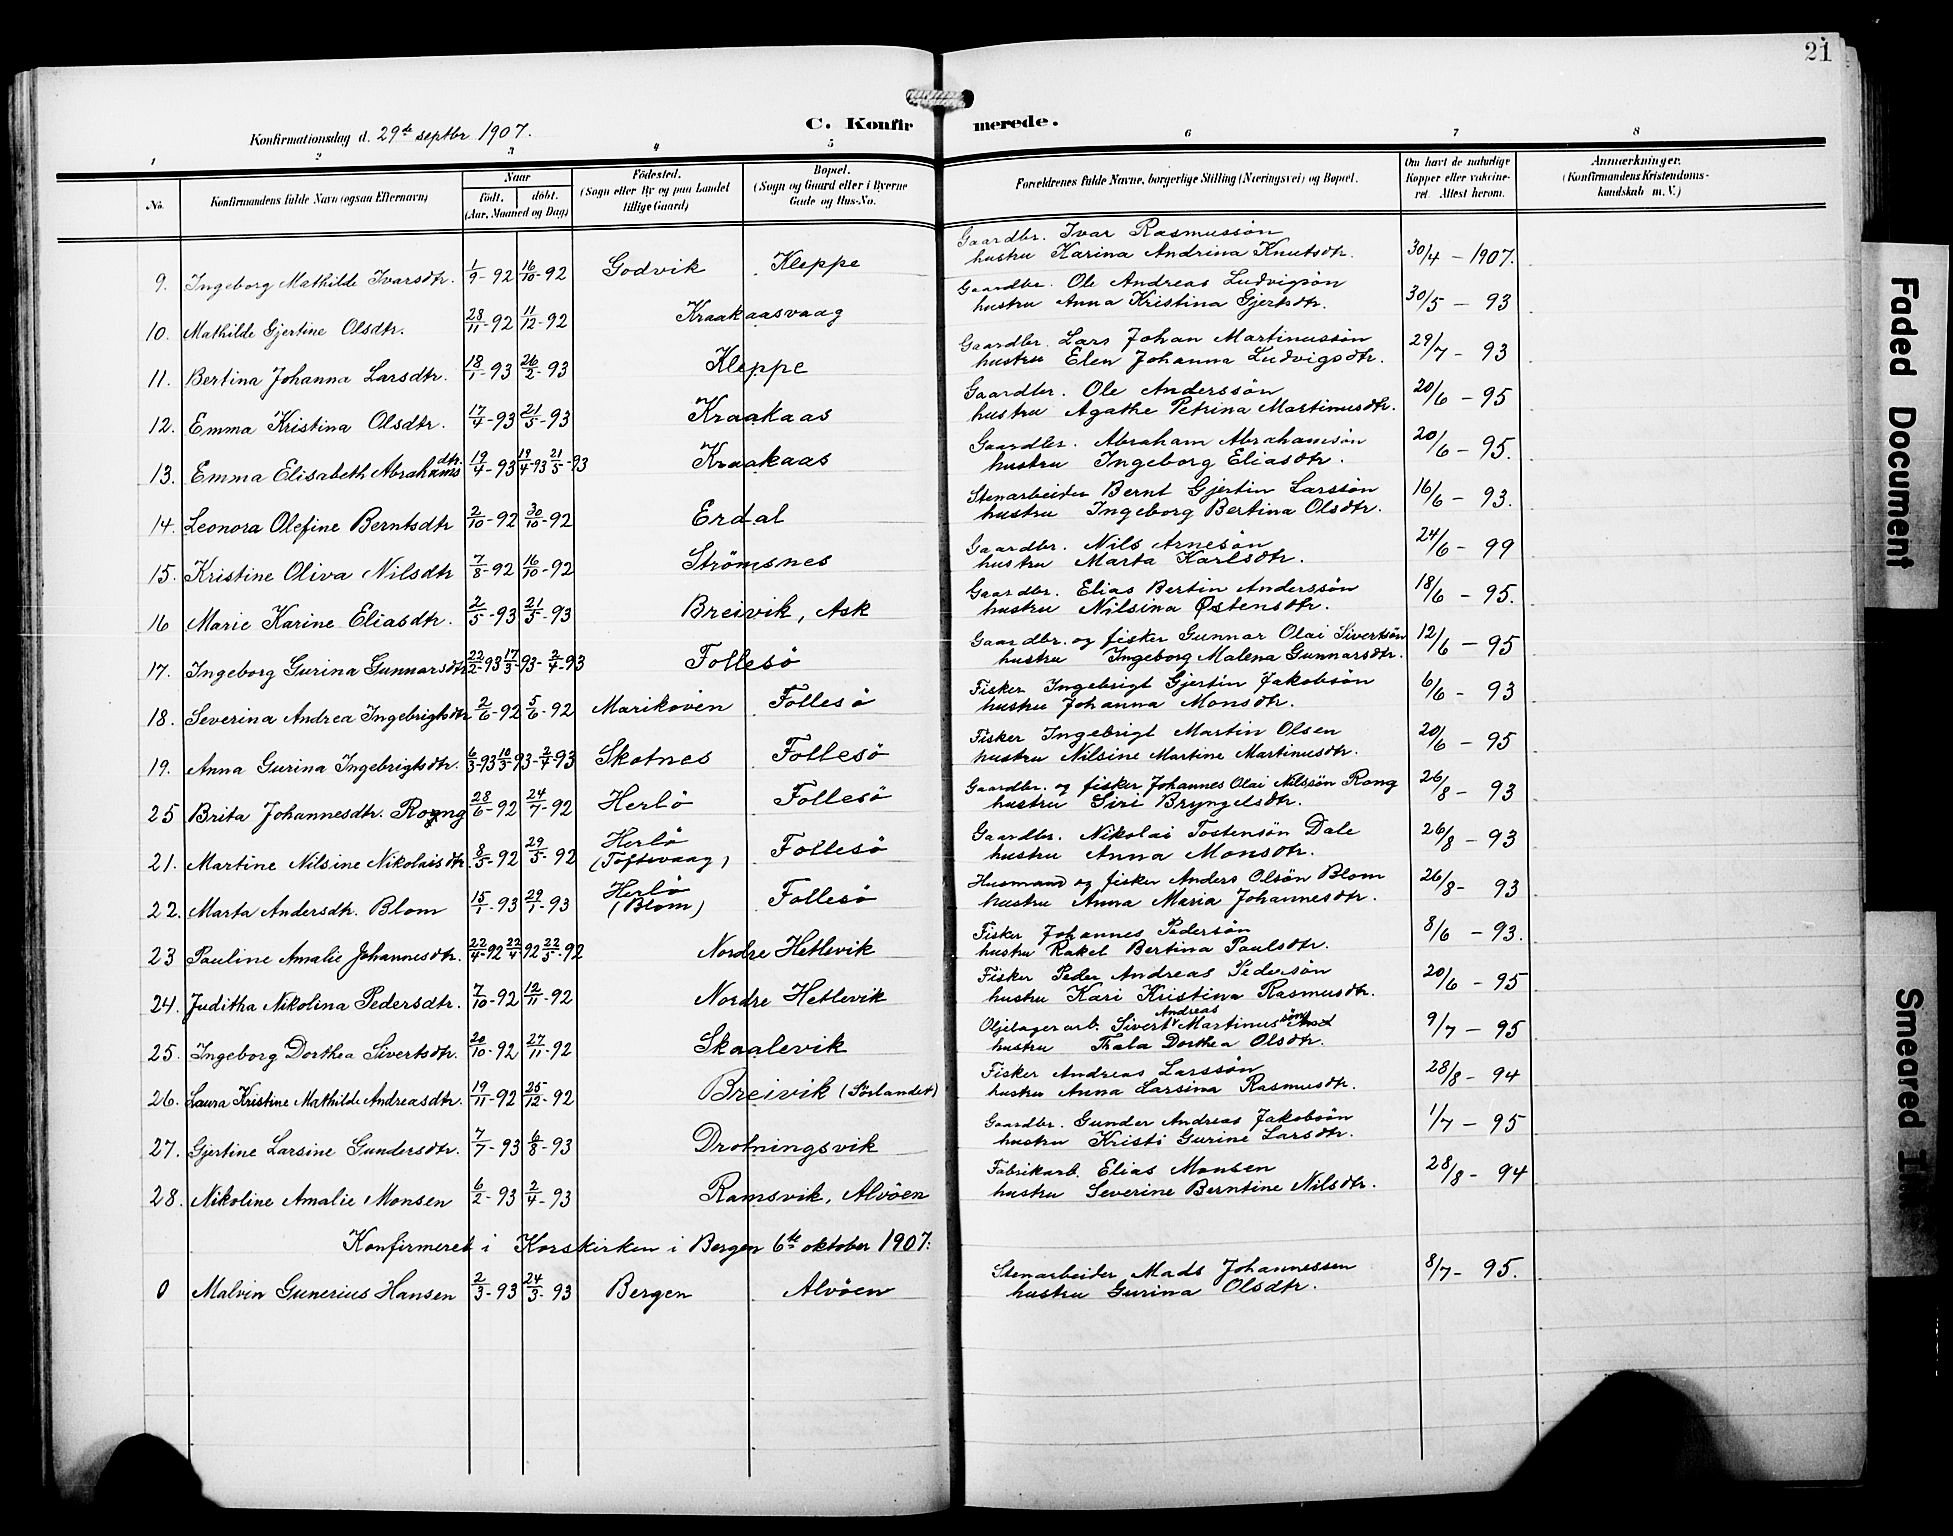 21
Konfirmationsdag d. 29de septbr 1907.
C. Konfirmerede.
1 2 3 4 5 6 7 8
No. Konfirmandens fulde Navn (ogsaa Efternavn) Naar født. døbt. (Aar, Maaned og Dag) Fødested. (Sogn eller By og paa Landet tillige Gaard) Bopæl. (Sogn og Gaard eller i Byerne Gade og Hus-No. Forældrenes fulde Navne, borgerlige Stilling (Næringsvei) og Bopæl. Om havt de naturlige Kopper eller vaccineret. Attest herom. Anmærkninger. (Konfirmandens Kristendomskundskab m. V.)
9. Ingeborg Mathilde Ivarsdtr. 1/9-92 16/10-92 Godvik Kleppe Gaardbr. Ivar Rasmussön hustru Karina Andrina Knutsdtr. 30/4 - 1907.
10. Mathilde Gjertine Olsdtr. 28/11-92 11/12-92 Kraakaasvaag Gaardbr. Ole Andreas Ludvigsön hustru Anna Kristina Gjertsdtr. 30/5 - 93
11. Bertina Johanna Larsdtr. 18/1-93 26/2-93 Kleppe Gaardbr. Lars Johan Martinussön hustru Elen Johanna Ludvigsdtr. 29/7 - 93
12. Emma Kristina Olsdtr. 17/4-93 21/5-93 Kraakaas Gaardbr. Ole Anderssön hustru Agathe Petrina Martinusdtr. 20/6 - 95
13. Emma Elisabeth Abrahamsdtr. 19/4-93 19/4-93 21/5-93 Kraakaas Gaardbr. Abraham Abrahamsön hustru Ingeborg Eliasdtr. 20/6 - 95.
14. Leonora Olefine Berntsdtr 2/10-92 30/10-92 Erdal Stenarbeider Bernt Gjertin Larssön hustru Ingeborg Bertina Olsdtr. 16/6 - 93.
15. Kristine Oliva Nilsdtr 7/8-92 16/10-92 Strömsnes Gaardbr. Nils Arnesön hustru Marta Karlsdtr. 24/6 - 99
16 Marie Karine Eliasdtr. 2/5-93 21/5-93 Breivik, Ask Gaardbr. Elias Bertin Anderssön hustru Nilsina Østensdtr. 18/6 - 95.
17. Ingeborg Gurina Gunnarsdtr 22/2-93 17/3 93- 2/4-93 Follesö Gaardbr. og fisker Gunnar Olai Sivertsön hustru Ingeborg Malena Gunnarsdtr. 12/6 - 95
18. Severina Andrea Ingebrigtsdtr 2/6-92 5/6-92 Marikoven Follesö Fisker Ingebrigt Gjertin Jakobsön hustru Johanna Monsdtr. 6/6 - 93
19. Anna Gurina Ingebrigtsdtr. 6/3-93 10/3-93- 2/4-93 Skotnes Follesö Fisker Ingebrigt Martin Olsen hustru Nilsine Martine Martinusdtr. 20/6 - 95
25 Brita Johannesdtr. Rong 28/6-92 24/7-92 Herlö Follesö Gaardbr. og fisker Johannes Olai Nilssön Rong hustru Siri Bryngelsdtr. 26/8 - 93
21. Martine Nilsine Nikolaisdtr. 8/5-92 29/5-92 Herlö (Toftevaag) Follesö Gaardbr. Nikolai Tostensön Dale hustru Anna Monsdtr. 26/8 - 93
22. Marta Andersdtr. Blom 15/1-93 29/1-93 Herlö (Blom) Follesö Husmand og fisker Anders Olsön Blom hustru Anna Maria Johannesdtr. 26/8- 93
23 Pauline Amalie Johannesdtr. 22/4-92 22/4 92 22/5-92 Nordre Hetlevik Fisker Johannes Pedersön hustru Rakel Bertina Paulsdtr. 8/6 - 93.
24. Juditha Nikolina Pedersdtr. 7/10-92 12/11-92 Nordre Hetlevik Fisker Peder Andreas Pedersön hustru Kari Kristina Rasmusdtr. 20/6 - 95
25. Ingeborg Dorthea Sivertsdtr. 20/10-92 27/11-92 Skaalevik Oljelagerarb. Sivert Andreas Martinussön hustru Thala Dorthea Olsdtr. 9/7 - 95
26. Laura Kristine Mathilde Andreasdtr. 19/11-92 25/12-92 Breivik (Sörlandet) Fisker Andreas Larssön hustru Anna Larsina Rasmusdtr. 28/8 - 94
27. Gjertine Larsine Gundersdtr. 7/7-93 6/8-93 Drotningsvik Gaardbr. Gunder Andreas Jakobsön hustru Kristi Gurine Larsdtr. 1/7 - 95
28. Nikoline Amalie Monsen 6/2-93 2/4-93 Ramsvik, Alvöen Fabrikarb. Elias Monsen hustru Severine Berntine Nilsdtr. 28/8 - 94
Konfirmeret i Korskirken i Bergen 6te oktober 1907.
0 Malvin Gunerius Hansen 2/3-93 24/3-93 Bergen Alvöen Stenarbeider Mads Johannessen hustru Gurina Olsdtr. 8/7 - 95.
Faded Document
Smeared